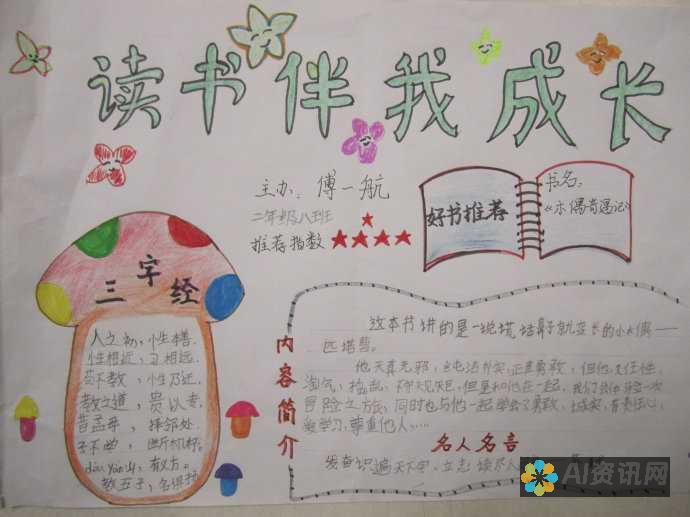 读书伴我成长
主办：傅一航
二年级八班
推荐指数
好书推荐
书名：
《木偶奇遇记》
三字经
人之初，性本善.
性相近，习相远.
苟不教，性乃迁.
教之道，贵以专.
昔孟母，择邻处.
子不学，断机杼.
dòu yān shān，有义方。
教五子，名俱扬
内容简介
这本书讲的是一说谎，结鼻子就变长的小木偶——
匹诺曹。
他天真无邪，勇敢，但他又任性、
淘气、捣乱、不和他在一起，我们会体验一次
冒险之旅，同时也与他一起学会了勇敢、诚实、有责任心、
爱学习、尊重他人……
名人名言
发奋识遍天下字，立志读尽人
AI资讯网